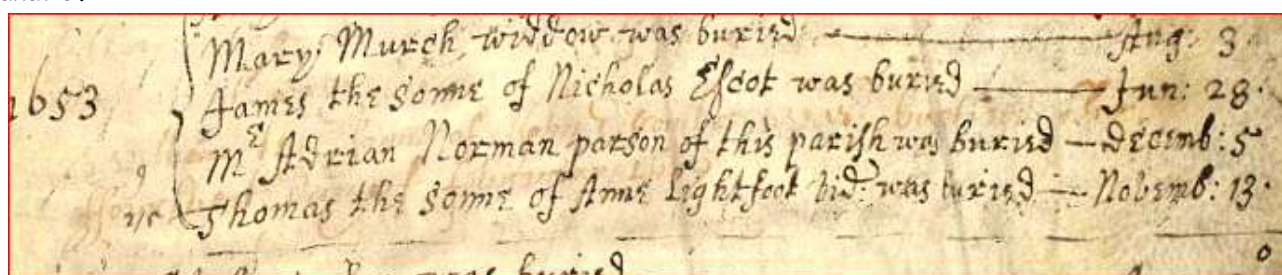 Mary Murch widdow was buried Aug: 3
1653 James the sonne of Nicholas Escot was buried Jun: 28
Mr Adrian Norman parson of this parish was buried decemb: 5
Thomas the sonne of Anne Lightfoot wid: was buried Novemb: 13
was buried